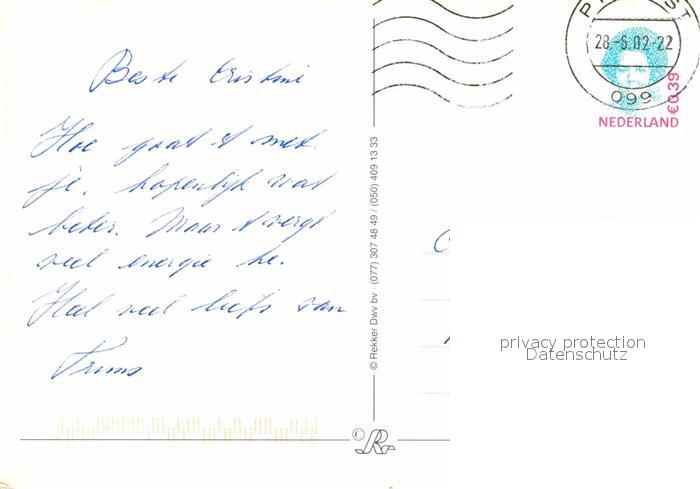 Beste Cristine
Hoe gaat 't met
je, hopenlijk wat
beter. Maar 't vergt
veel energie he.
Heel veel liefs van
Truus
© Rekker Dwv bv · (077) 307 48 49 / (050) 409 13 33
28.-6.02-22
099
€0,39
NEDERLAND
privacy protection
Datenschutz